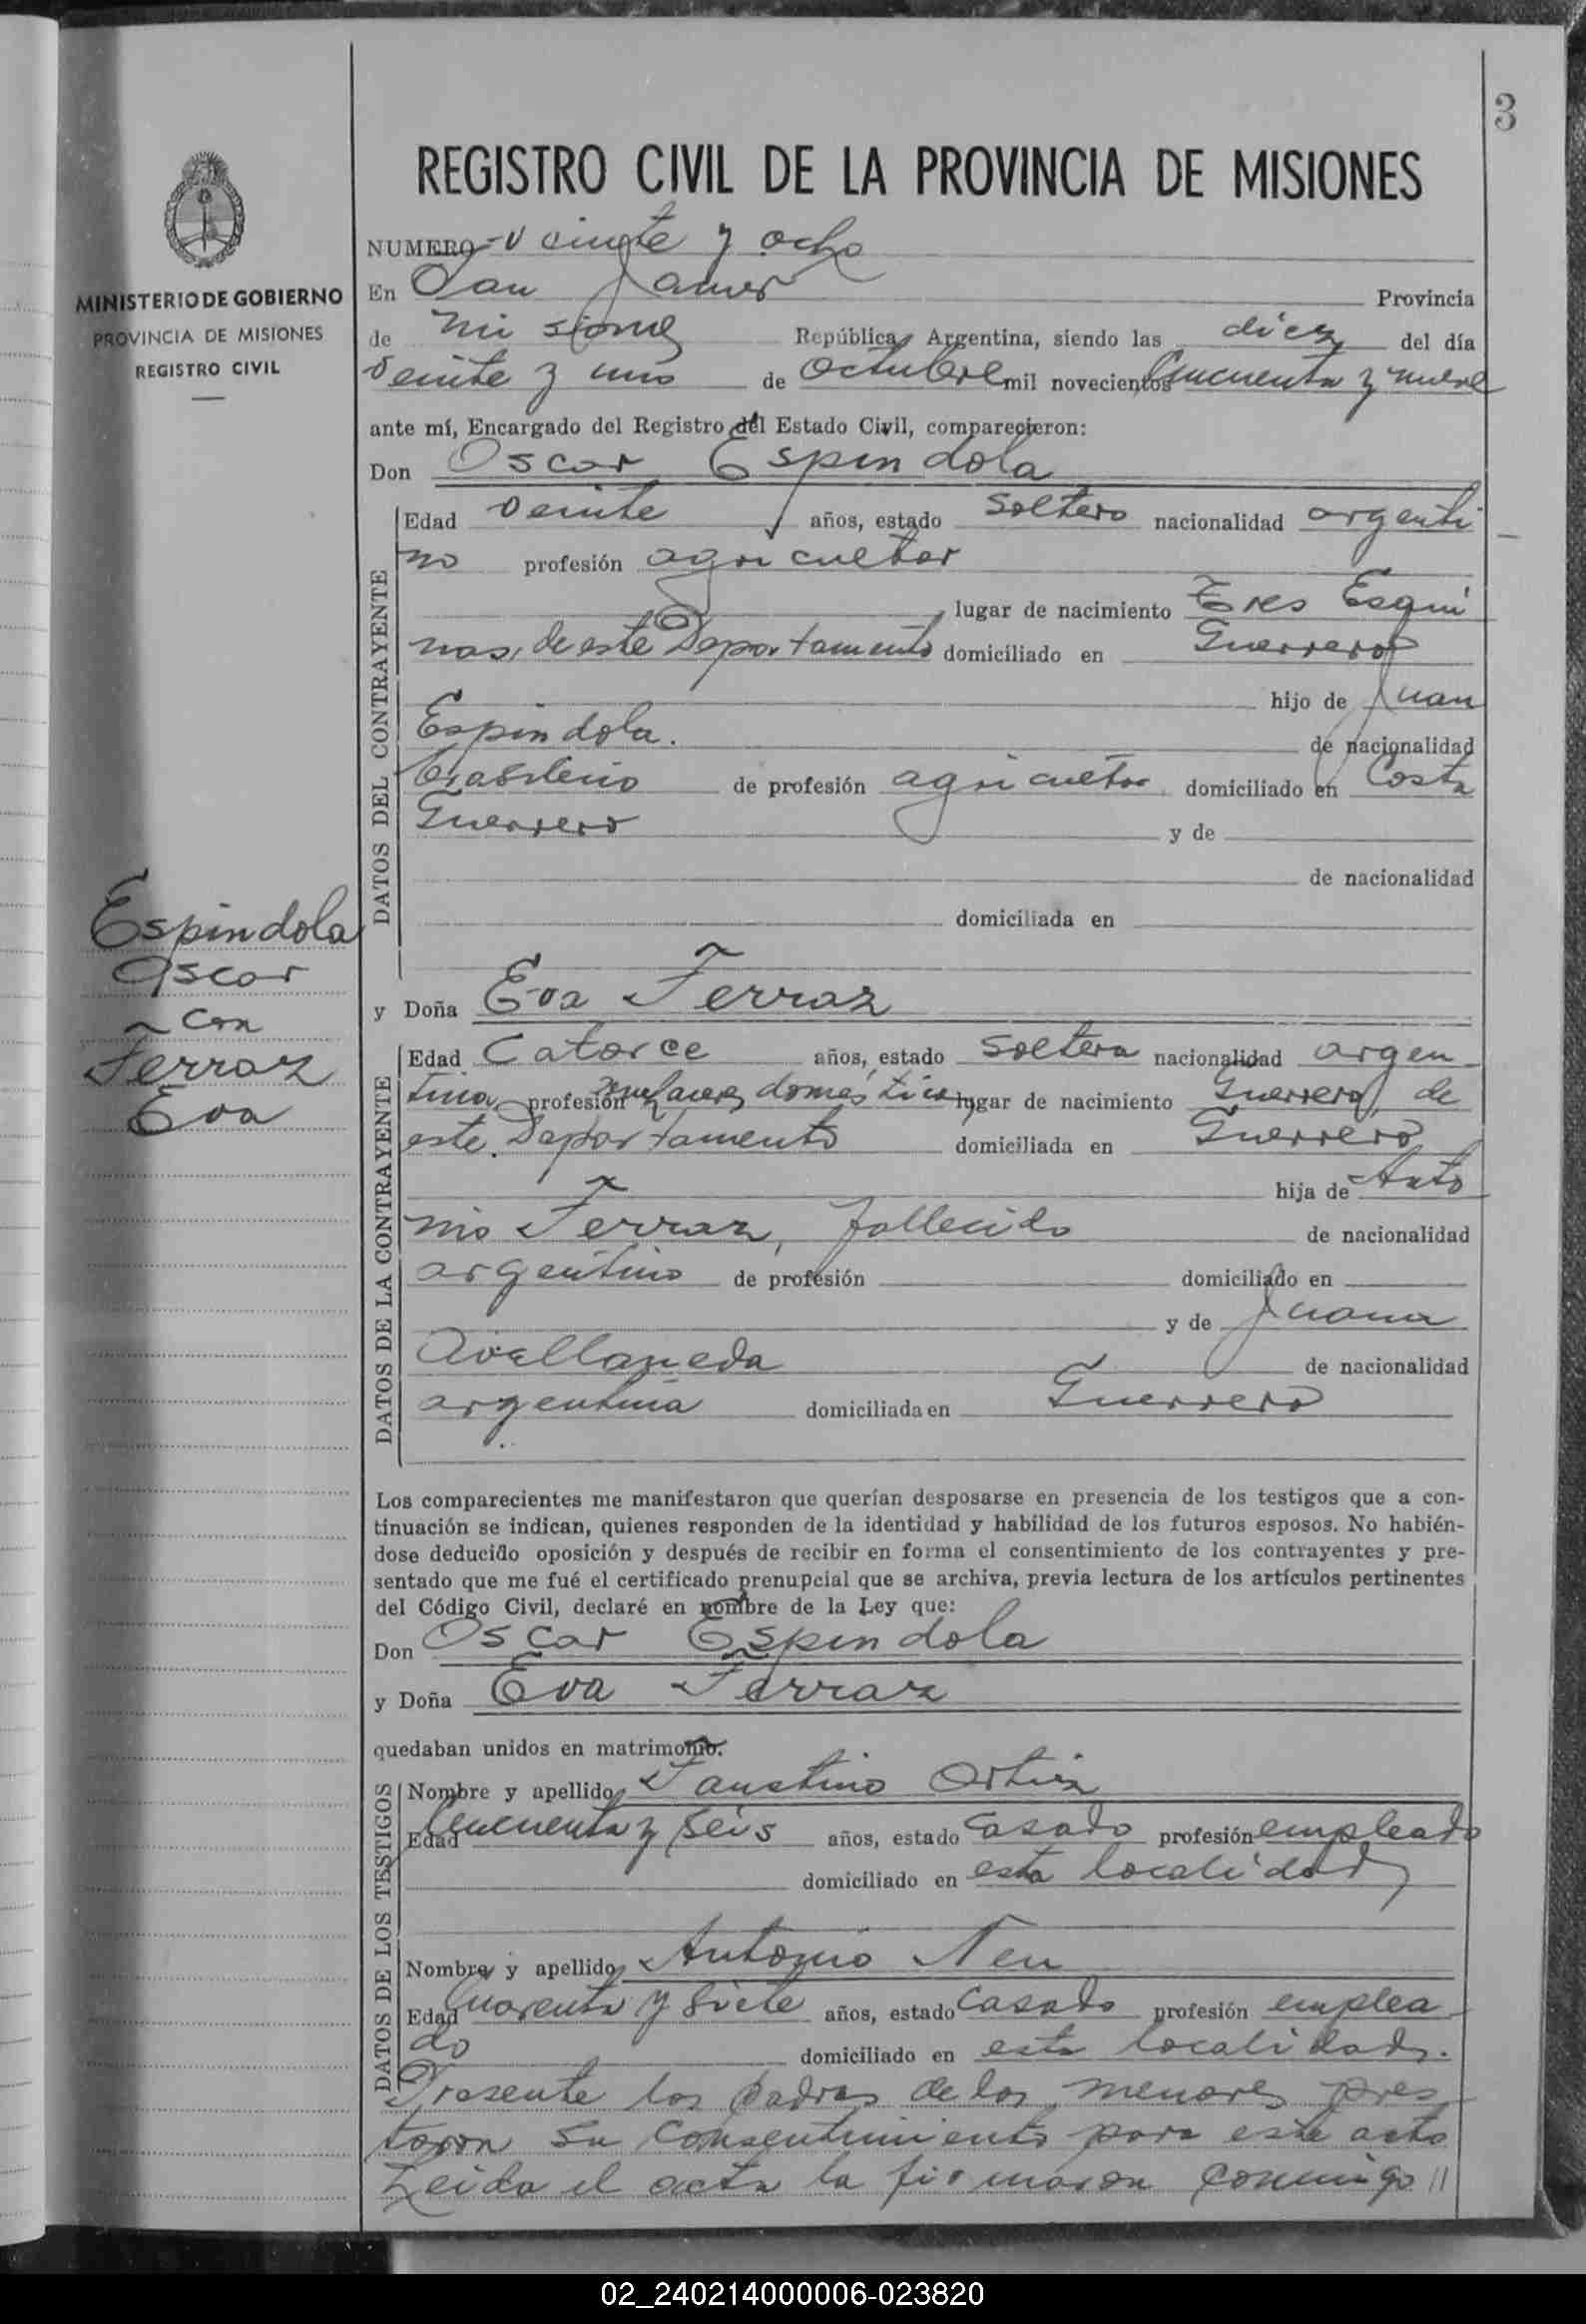 3
REGISTRO CIVIL DE LA PROVINCIA DE MISIONES
MINISTERIO DE GOBIERNO
PROVINCIA DE MISIONES
REGISTRO CIVIL
Espindola
Oscar
con
Ferraz
Eva
NUMERO veinte y ocho
En San Javier Provincia
de Misiones República Argentina, siendo las diez del día
veinte y uno de Octubre mil novecientos cincuenta y nueve
ante mí, Encargado del Registro del Estado Civil, comparecieron:
Don Oscar Espindola
DATOS DEL CONTRAYENTE
Edad veinte años, estado soltero nacionalidad argenti
no profesión agricultor
lugar de nacimiento Tres Esqui
nas, de este Departamento domiciliado en Guerrero
hijo de Juan
Espindola. de nacionalidad
brasilero de profesión agricultor domiciliado en Costa
Guerrero y de
de nacionalidad
domiciliada en
y Doña Eva Ferraz
DATOS DE LA CONTRAYENTE
Edad Catorce años, estado soltera nacionalidad argen
tina profesión quehaceres domésticos lugar de nacimiento Guerrero, de
este Departamento domiciliada en Guerrero
hija de Anto
nio Ferraz, fallecido de nacionalidad
argentino de profesión domiciliado en
y de Juana
Avellaneda de nacionalidad
argentina domiciliada en Guerrero
Los comparecientes me manifestaron que querían desposarse en presencia de los testigos que a con-
tinuación se indican, quienes responden de la identidad y habilidad de los futuros esposos. No habién-
dose deducido oposición y después de recibir en forma el consentimiento de los contrayentes y pre-
sentado que me fué el certificado prenupcial que se archiva, previa lectura de los artículos pertinentes
del Código Civil, declaré en nombre de la Ley que:
Don Oscar Espindola
y Doña Eva Ferraz
quedaban unidos en matrimonio.
DATOS DE LOS TESTIGOS
Nombre y apellido Faustino Ortiz
Edad Cincuenta y seis años, estado casado profesión empleado
domiciliado en esta localidad
Nombre y apellido Antonio Neu
Edad Cuarenta y siete años, estado casado profesión emplea
do domiciliado en esta localidad.
Presente los padres de los menores pres
taron su consentimiento para este acto
Leida el acta la firmaron conmigo //
02_240214000006-023820